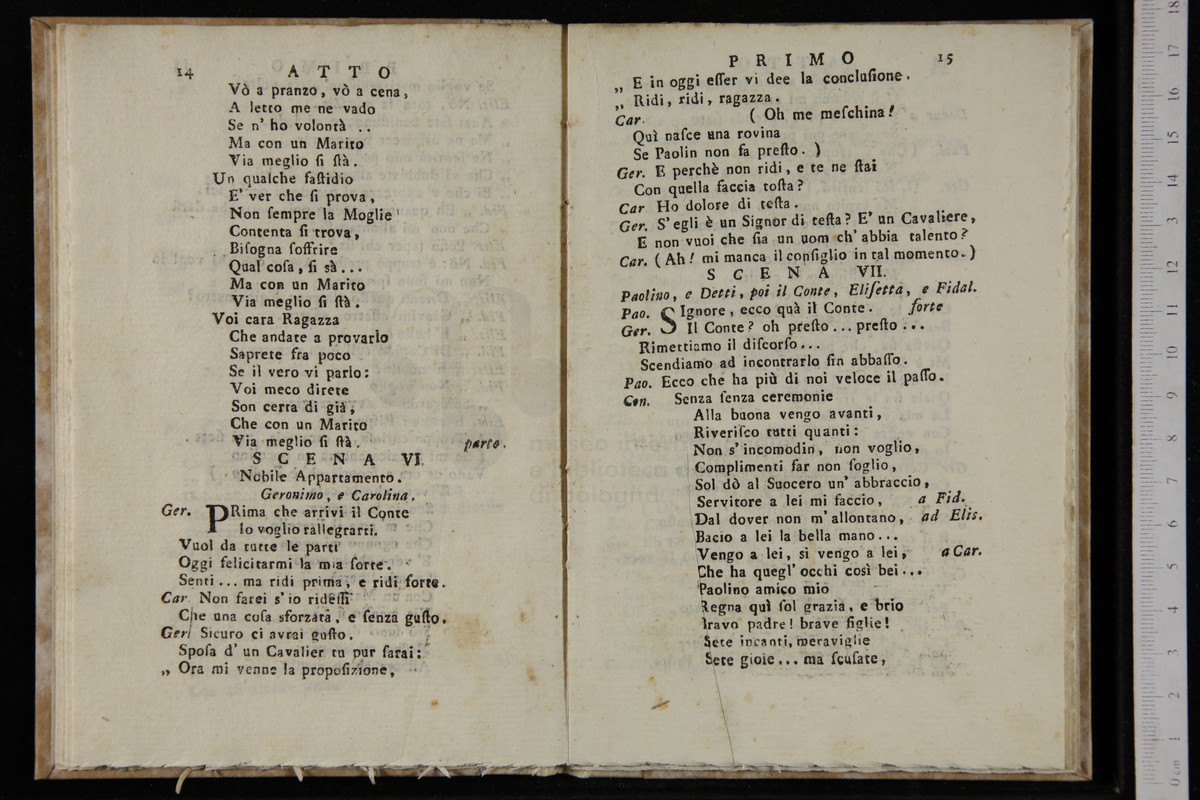 14 A T T O
Vò a pranzo, vò a cena,
A letto me ne vado
Se n' ho volontà ..
Ma con un Marito
Via meglio ſi ſtà.
Un qualche faſtidio
E' ver che ſi prova,
Non ſempre la Moglie
Contenta ſi trova,
Biſogna ſoffrire
Qual coſa, ſi sà...
Ma con un Marito
Via meglio ſi ſtà.
Voi cara Ragazza
Che andate a provarlo
Saprete fra poco
Se il vero vi parlo:
Voi meco direte
Son certa di già,
Che con un Marito
Via meglio ſi ſtà. parte.
S C E N A VI.
Nobile Appartamento.
Geronimo, e Carolina.
Ger. PRima che arrivi il Conte
Io voglio rallegrarti.
Vuol da tutte le parti
Oggi felicitarmi la mia ſorte.
Senti... ma ridi prima, e ridi forte.
Car. Non farei s' io rideſſi
Che una coſa sforzata, e ſenza guſto.
Ger. Sicuro ci avrai guſto.
Spoſa d' un Cavalier tu pur ſarai:
„ Ora mi venne la propoſizione,
P R I M O 15
„ E in oggi eſſer vi dee la concluſione.
„ Ridi, ridi, ragazza.
Car. ( Oh me meſchina!
Quì naſce una rovina
Se Paolin non fa preſto. )
Ger. E perchè non ridi, e te ne ſtai
Con quella faccia toſta?
Car Ho dolore di teſta.
Ger. S' egli è un Signor di teſta? E' un Cavaliere,
E non vuoi che ſia un uom ch' abbia talento?
Car. ( Ah! mi manca il conſiglio in tal momento. )
S C E N A VII.
Paolino, e Detti, poi il Conte, Eliſetta, e Fidal.
Pao. SIgnore, ecco quà il Conte. forte
Ger. Il Conte? oh preſto... preſto...
Rimettiamo il diſcorſo...
Scendiamo ad incontrarlo ſin abbaſſo.
Pao. Ecco che ha più di noi veloce il paſſo.
Con. Senza ſenza ceremonie
Alla buona vengo avanti,
Riveriſco tutti quanti:
Non s' incomodin, non voglio,
Complimenti far non ſoglio,
Sol dò al Suocero un' abbraccio,
Servitore a lei mi faccio, a Fid.
Dal dover non m' allontano, ad Elis.
Bacio a lei la bella mano...
Vengo a lei, si vengo a lei, a Car.
Che ha quegl' occhi così bei...
Paolino amico mio
Regna quì ſol grazia, e brio
Bravo padre! brave figlie!
Sete incanti, meraviglie
Sete gioie... ma ſcuſate,